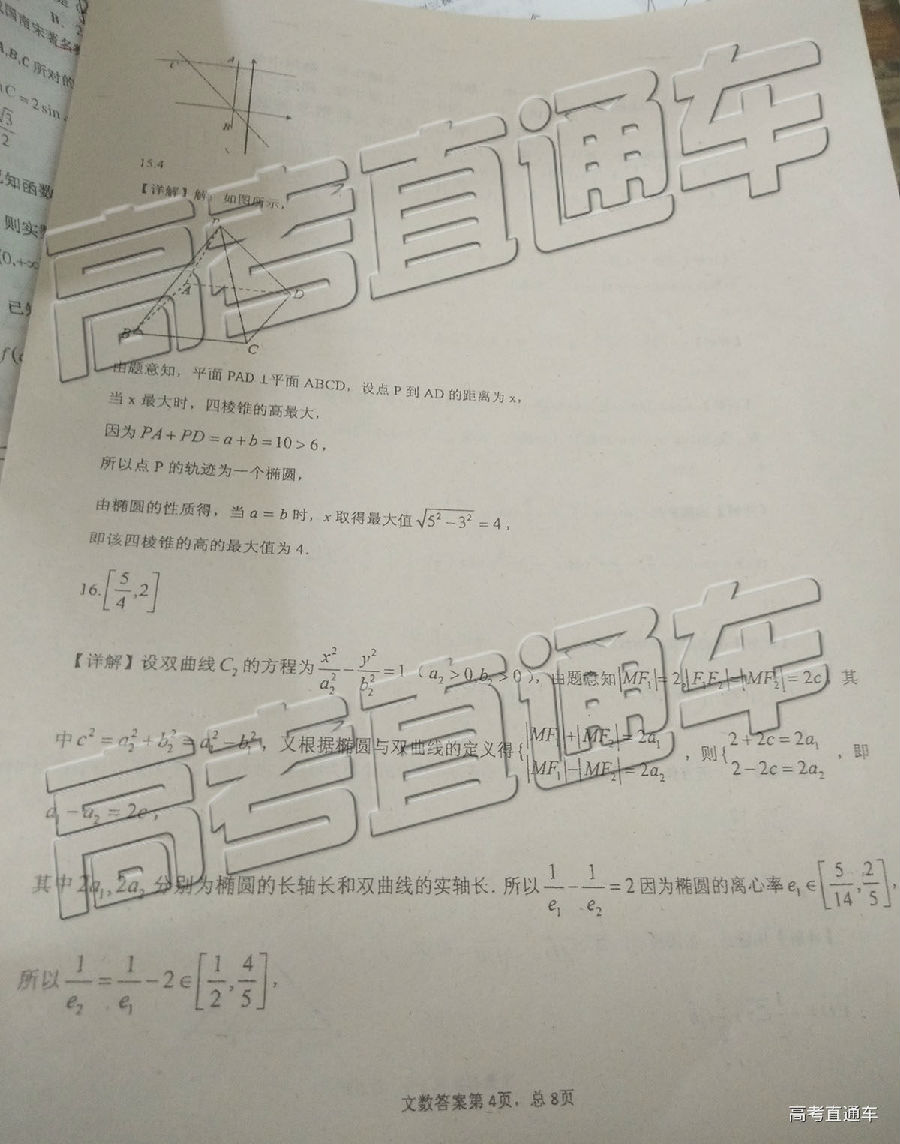 国南宋著名
A,B,C 所对的
C=2sin
√3/2
已知函数
则实
(0,+∞
已知
C
A
B
15.4
【详解】解：如图所示，
P
A
D
B
C
由题意知，平面 PAD⊥平面 ABCD，设点 P 到 AD 的距离为 x，
当 x 最大时，四棱锥的高最大，
因为 PA+PD=a+b=10>6，
所以点 P 的轨迹为一个椭圆，
由椭圆的性质得，当 a=b 时，x 取得最大值 √(5²-3²)=4，
即该四棱锥的高的最大值为 4.
16.[5/4,2]
【详解】设双曲线 C₂ 的方程为 x²/a₂²-y²/b₂²=1（a₂>0,b₂>0），由题意知|MF₁|=2,|F₁F₂|=|MF₂|=2c，其
中 c²=a₂²+b₂²=a₁²-b₁²，又根据椭圆与双曲线的定义得{|MF₁|+|MF₂|=2a₁ |MF₁|-|MF₂|=2a₂，则{2+2c=2a₁ 2-2c=2a₂，即
a₁-a₂=2c，
其中 2a₁,2a₂ 分别为椭圆的长轴长和双曲线的实轴长. 所以 1/e₁-1/e₂=2 因为椭圆的离心率 e₁∈[5/14,2/5]，
所以 1/e₂=1/e₁-2∈[1/2,4/5]，
文数答案第 4页，总 8页
高考直通车
高考直通车
高考直通车